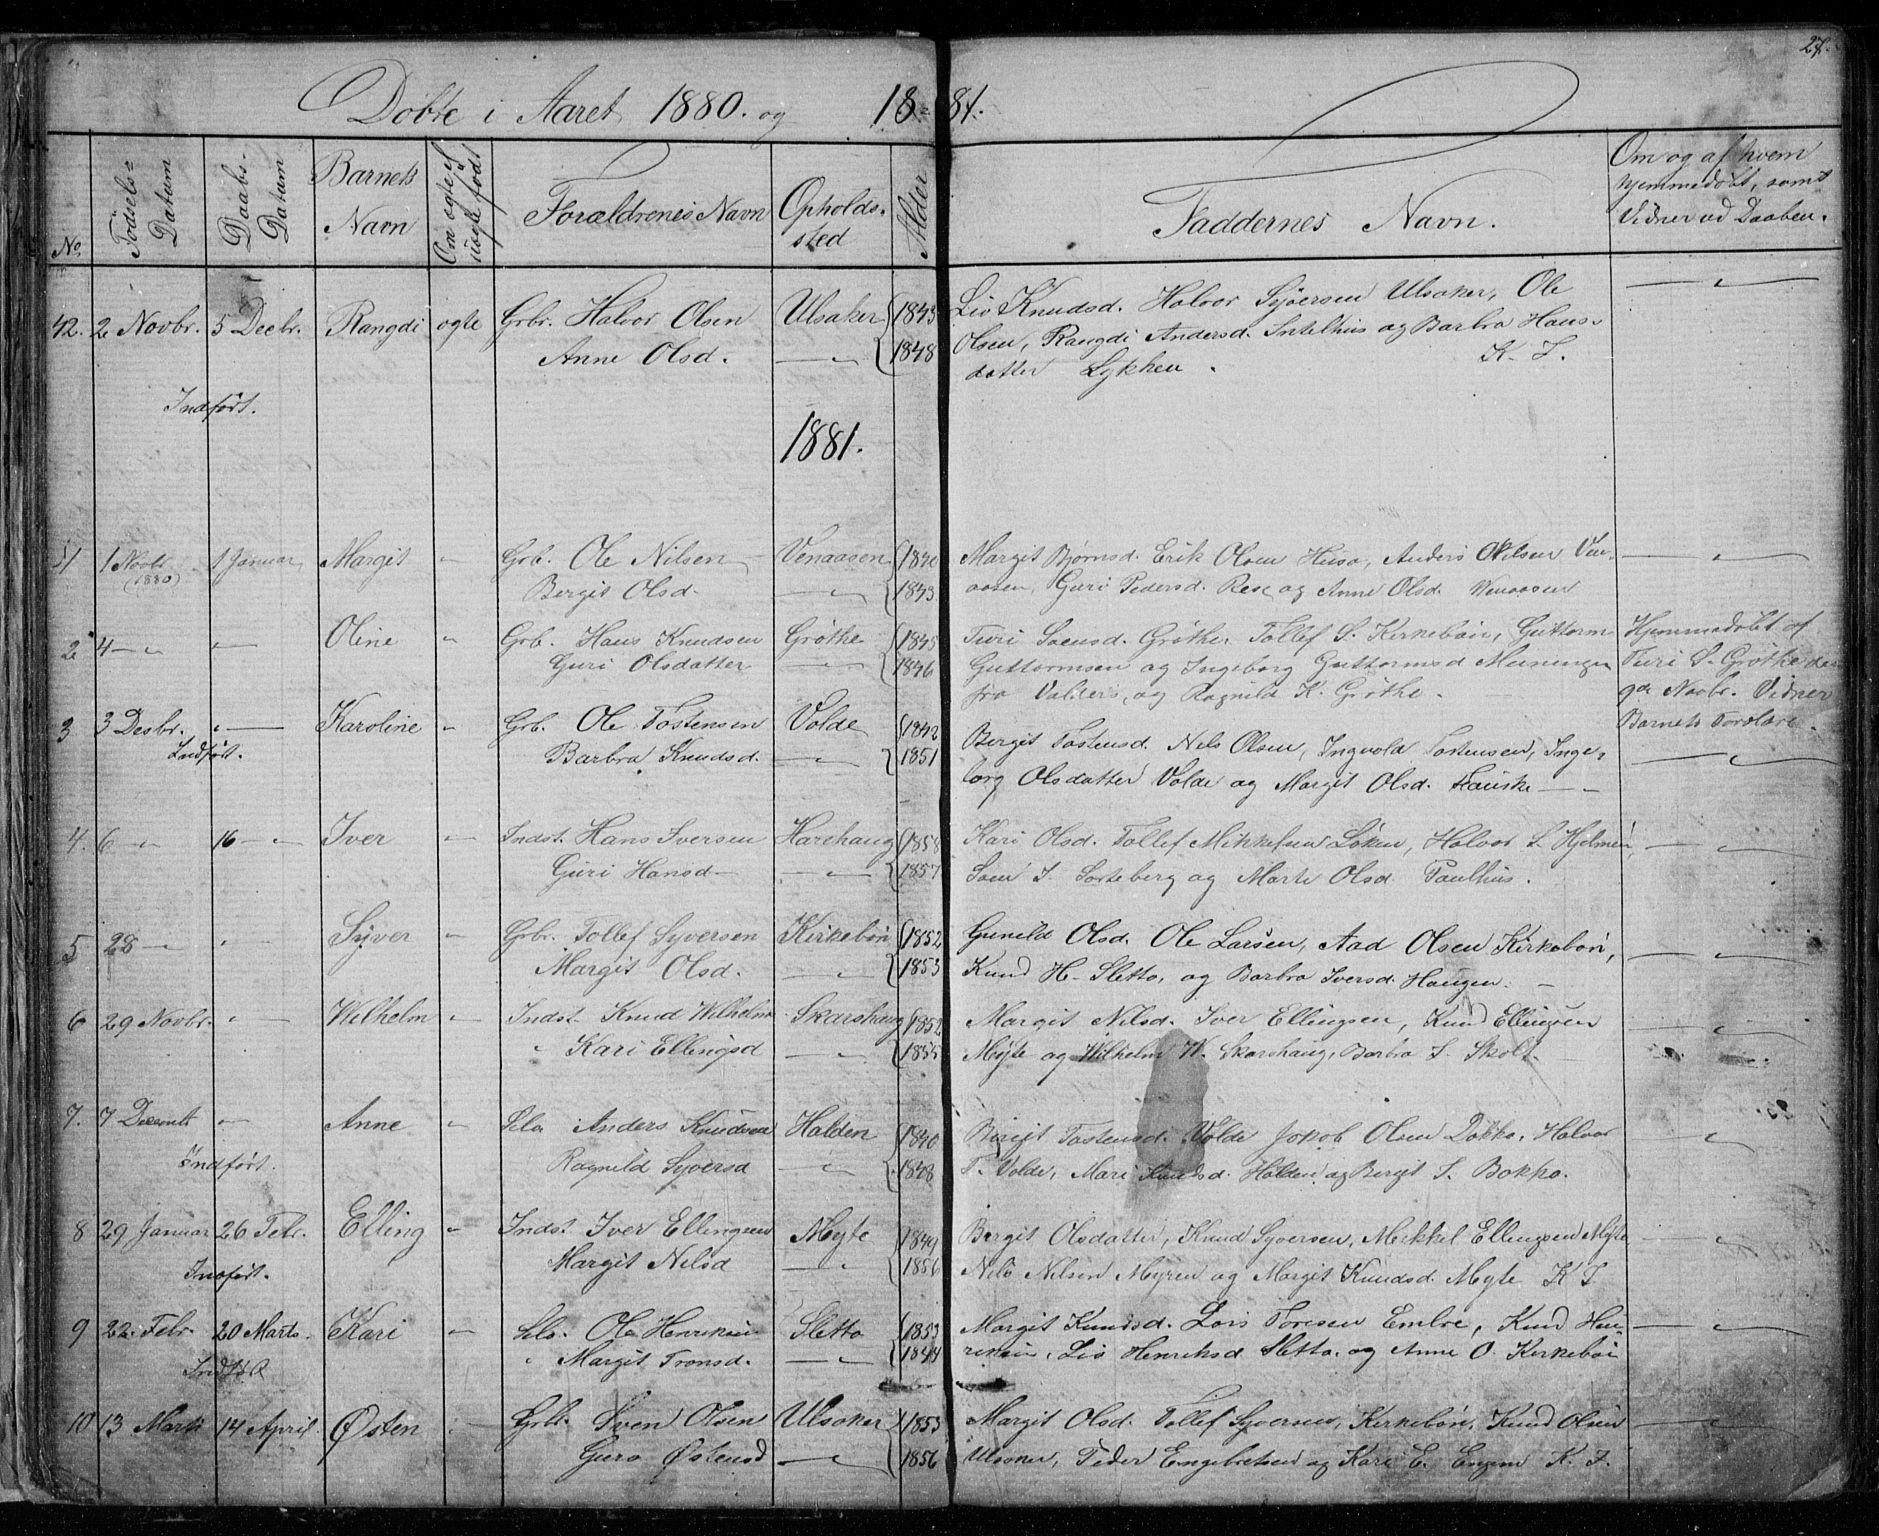 27.
Döbte i Aaret 1880. og 18-81.
No. Födsels-Datum Daabs-Datum Barnets Navn Om ogte el. uogte född Forældrenes Navn Opholds-sted Alder Faddernes Navn. Om og af hvem hjemmedöbt, samt Vidner ved Daaben.
42. 2 Novbr. 5 Decbr. Rangdi ogte Grbr. Halvor Olsen Ulsaker 1843 Liv Knudsd. Halvor Syversen Ulsaker, Ole
Anne Olsd. 1848 Olsen, Rangdi Andersd. Intelhus og Barbra Hans-
datter Lykken. K. J.
Indfört.
1881.
1 1 Novbr (1880) 1 Januar Margit Grb. Ole Nilsen Venaasen 1840 Margit Björnsd. Erik Olsen Huso, Anders Nilsen Ven-
Bergit Olsd. 1843 aasen, Guri Pedersd. Rese og Anne Olsd. Venaasen
2 4 Oline Grb. Hans Knudsen Gröthe 1845 Turi Soensd. Gröthe. Tollef S. Kirkeböin, Guttorm Hjemmedöbt af
Guri Olsdatter 1846 Guttormsen og Ingeborg Guttormsd Meningen Turi S. Gröthe den
fra Valders, og Ragnild K. Gröthe. 9de Novbr. Vidner
Barnets Forældre.
3 3 Desbr. Karoline Grb. Ole Tostensen Volde 1842 Bergit Tostensd. Nels Olsen, Ingvald Tostensen, Inge-
Indfört. Barbra Knudsd. 1851 borg Olsdatter Volde og Margit Olsd. Hauske
4. 6 16 Iver Indst. Hans Iversen Harehaug 1858 Kari Olsd. Tollef Mikkelsen Löken, Halvor S. Hjelmen,
Guri Hansd. 1857 Soen S. Sorteberg og Marte Olsd. Paulhus.
5 28 Syver Grbr. Tollef Syversen Kirkeböin 1852 Gunild Olsd. Ole Larsen, Aad Olsen Kirkeböin,
Margit Olsd. 1853 Knud H. Sletto, og Barbra Iversd. Haugen.
6 29 Novbr. Wilhelm Indst. Knud Wilhelms. Skarshaug 1852 Margit Nilsd. Iver Ellingsen, Knud Ellingsen
Kari Ellingsd 1855 Myte og Wilhelm W. Skarshaug, Barbra S. Skolt.
7. 7 Decemb Anne Sela Anders Knudsen Halden 1840 Birgit Tostensd. Volde Jokob Olsen Dokko, Halvor
Indfört. Ragnild Syversd 1848 T. Volde, Mari Knudsd. Halden og Bergit S. Bokko.
8 29 Januar 26 Febr. Elling Indst. Iver Ellingsen Myte 1849 Bergit Olsdatter, Knud Syversen, Mekkel Ellingsen Myte
Indfört. Margit Nilsd 1856 Nils Nilsen Myren og Margit Knudsd. Myte K J
9 22 Febr. 20 Marts. Kari Sela. Ole Henriksen Sletto 1853 Margit Knudsd. Lars Toresen Embre, Knud Hen-
Indfört Margit Tronsd. 1844 riksen, Liv Henriksd Sletto. og Anne O. Kirkeböi
10 13 Marts 14 April Østen Grb. Sven Olsen Ulsaker 1853 Margit Olsd. Tollef Syversen, Kirkeböin, Knud Olsen
Guro Østensd 1856 Ulsaker, Peder Engebretsen og Kari E. Engene K. J.